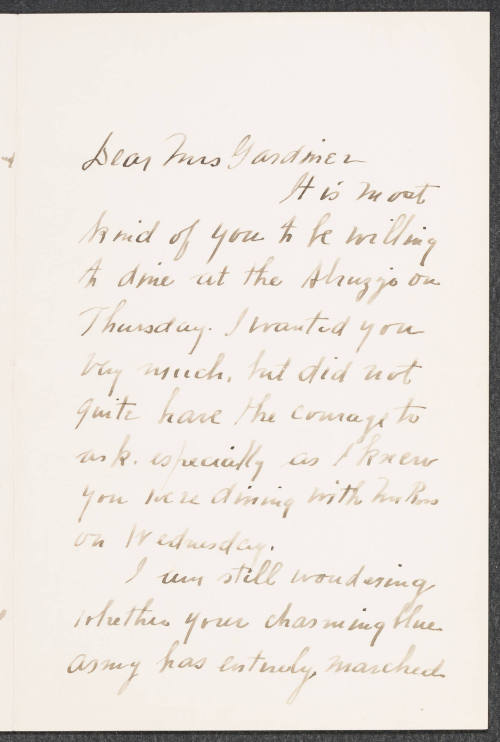 Dear Mrs Gardiner
It is most
kind of you to be willing
to dine at the Abruzzo on
Thursday. I wanted you
very much, but did not
quite have the courage to
ask. especially as I knew
you were dining with Mr Ross
on Wednesday.
I am still wondering
whether your charming blue
army has entirely marched